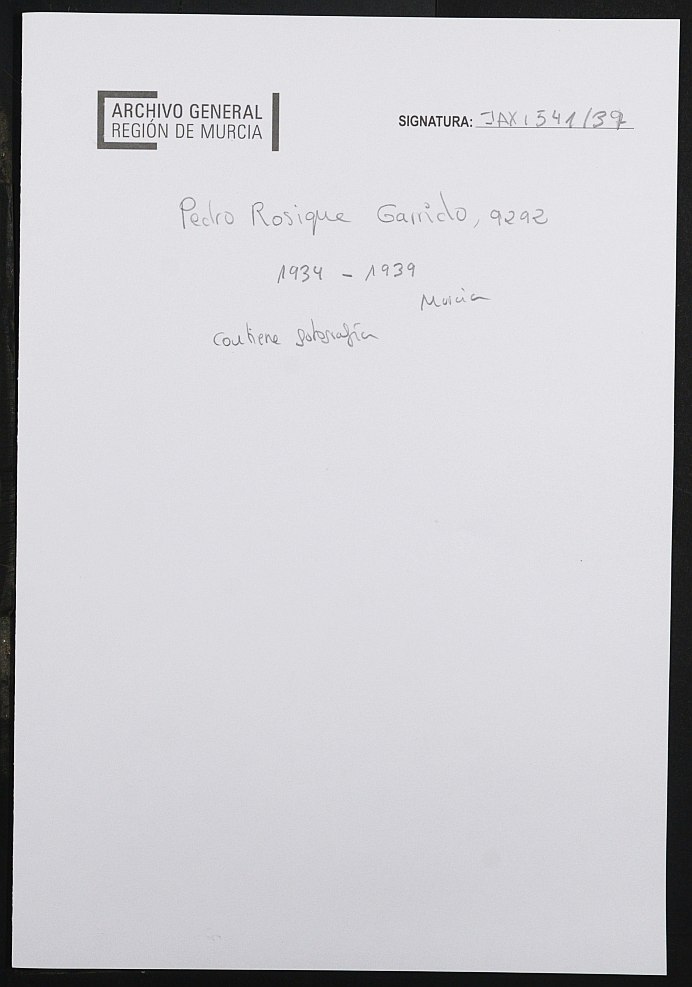 ARCHIVO GENERAL
REGIÓN DE MURCIA
SIGNATURA: JAX, 541/39
Pedro Rosique Garrido, 9292
1934 - 1939
Murcia
Contiene fotografía